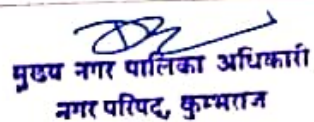 मुख्य नगर पालिका अधिकारी
नगर परिषद्, कुम्भराज